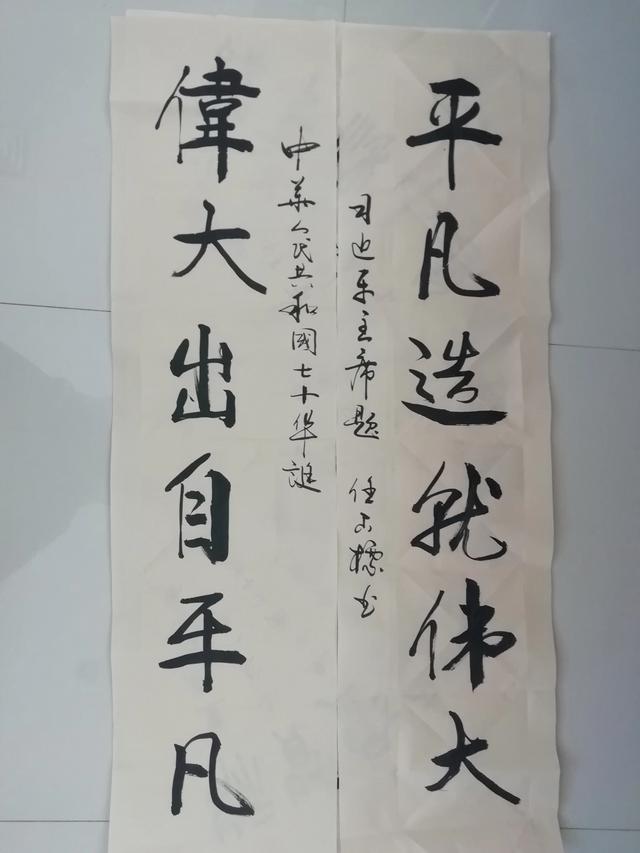 平凡造就伟大
习近平主席题 任 标书
中華人民共和國七十华誕
偉大出自平凡